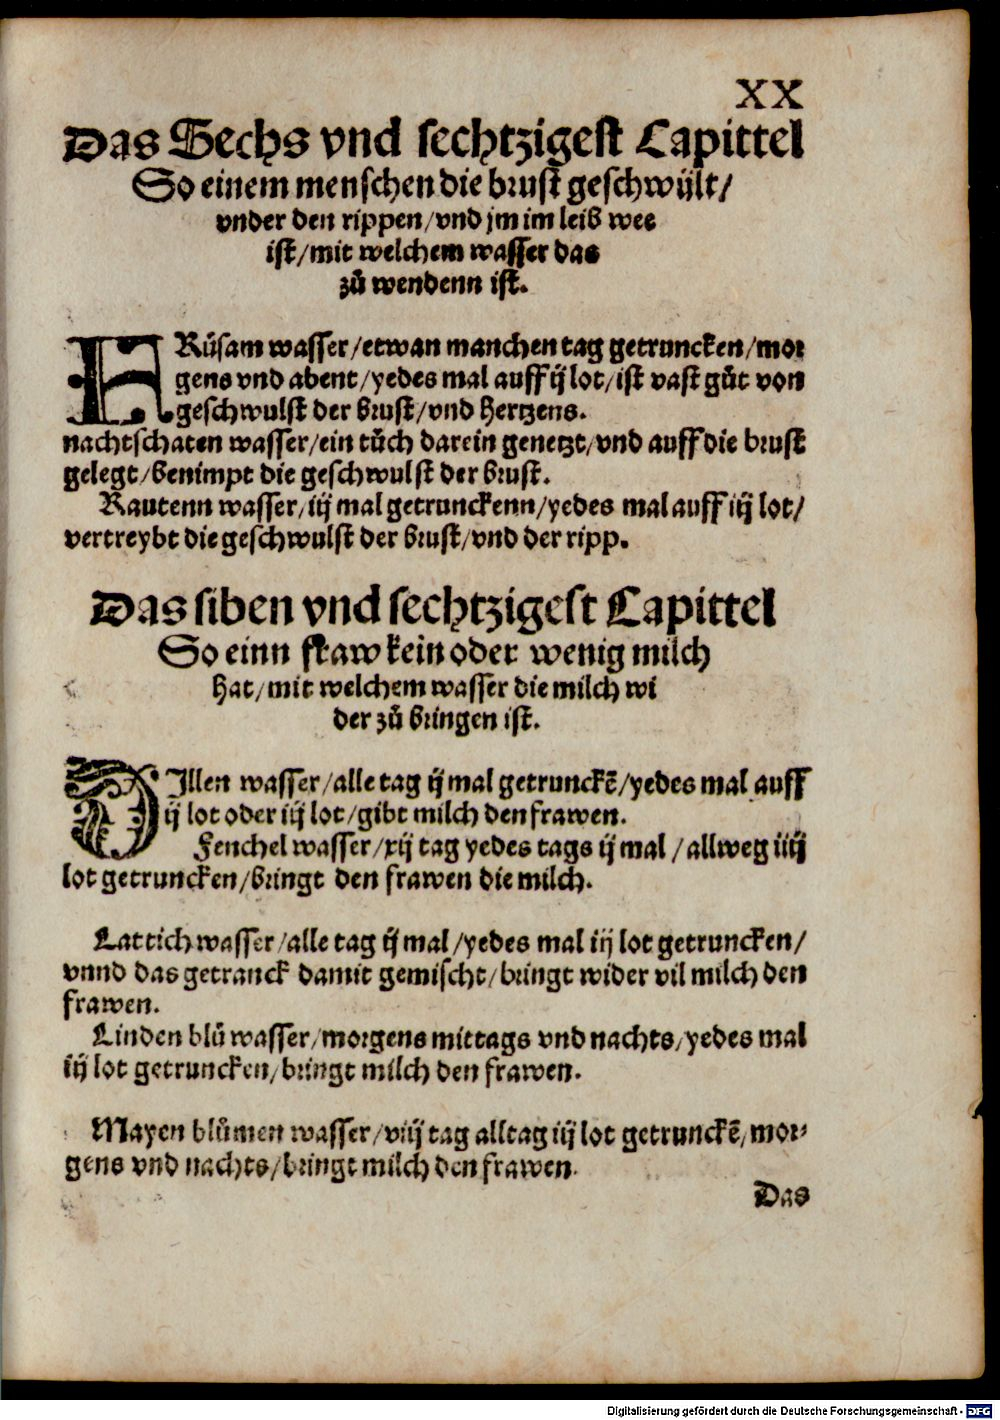 XX
Das Sechs vnd sechtzigest Capittel
So einem menschen die brust geschwült/
vnder den rippen/vnd jm im leib wee
ist/mit welchem wasser das
zů wendenn ist.
KRüsam wasser/etwan manchen tag getruncken/mor
gens vnd abent/yedes mal auff ij lot/ist vast gůt von
geschwulst der brust/vnd hertzens.
nachtschaten wasser/ein tůch darein genetzt/vnd auff die brust
gelegt/benimpt die geschwulst der brust.
Rautenn wasser/iij mal getrunckenn/yedes mal auff iij lot/
vertreybt die geschwulst der brust/vnd der ripp.
Das siben vnd sechtzigest Capittel
So einn fraw kein oder wenig milch
hat/mit welchem wasser die milch wi
der zů bringen ist.
DIllen wasser/alle tag ij mal getrunckẽ/yedes mal auff
ij lot oder iij lot/gibt milch den frawen.
Fenchel wasser/xij tag yedes tags ij mal/allweg iiij
lot getruncken/bringt den frawen die milch.
Lattich wasser/alle tag ij mal/yedes mal iij lot getruncken/
vnnd das getranck damit gemischt/bringt wider vil milch den
frawen.
Linden blů wasser/morgens mittags vnd nachts/yedes mal
iij lot getruncken/bringt milch den frawen.
Mayen blůmen wasser/viij tag alltag iij lot getrunckẽ/mor⸗
gens vnd nachts/bringt milch den frawen.
Das
Digitalisierung gefördert durch die Deutsche Forschungsgemeinschaft - DFG